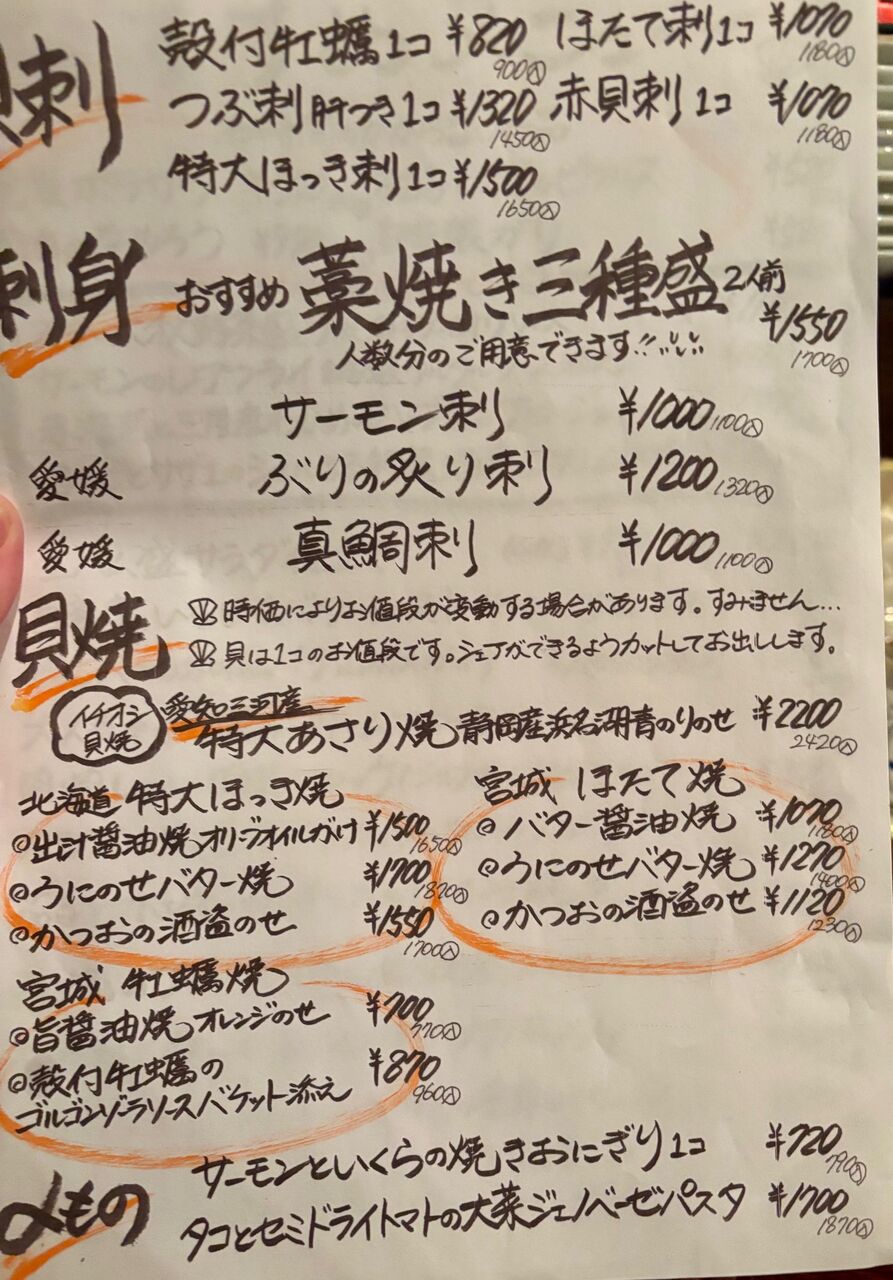 貝刺
殻付牡蠣1コ ¥820 900入 ほたて刺1コ ¥1070 1180入
つぶ刺肝つき1コ ¥1320 1450入 赤貝刺1コ ¥1070 1180入
特大ほっき刺1コ ¥1500 1650入
刺身 おすすめ 藁焼き三種盛 2人前 ¥1550 1700入
人数分のご用意できます!!
サーモン刺 ¥1000 1100入
愛媛 ぶりの炙り刺 ¥1200 1320入
愛媛 真鯛刺 ¥1000 1100入
貝焼
時価によりお値段が変動する場合があります。すみません…
貝は1コのお値段です。シェアができるようカットしてお出しします。
イチオシ貝焼
愛知三河産
特大あさり焼 静岡産浜名湖青のりのせ ¥2200 2420入
北海道 特大ほっき焼
◎出汁醤油焼オリーブオイルがけ ¥1500 1650入
◎うにのせバター焼 ¥1700 1870入
◎かつおの酒盗のせ ¥1550 1700入
宮城 ほたて焼
◎バター醤油焼 ¥1070 1180入
◎うにのせバター焼 ¥1270 1400入
◎かつおの酒盗のせ ¥1120 1230入
宮城 牡蠣焼
◎旨醤油焼オレンジのせ ¥700 770入
◎殻付牡蠣の ¥870 960入
ゴルゴンゾーラソースバケット添え
〆もの
サーモンといくらの焼きおにぎり1コ ¥720 790入
タコとセミドライトマトの大葉ジェノベーゼパスタ ¥1700 1870入